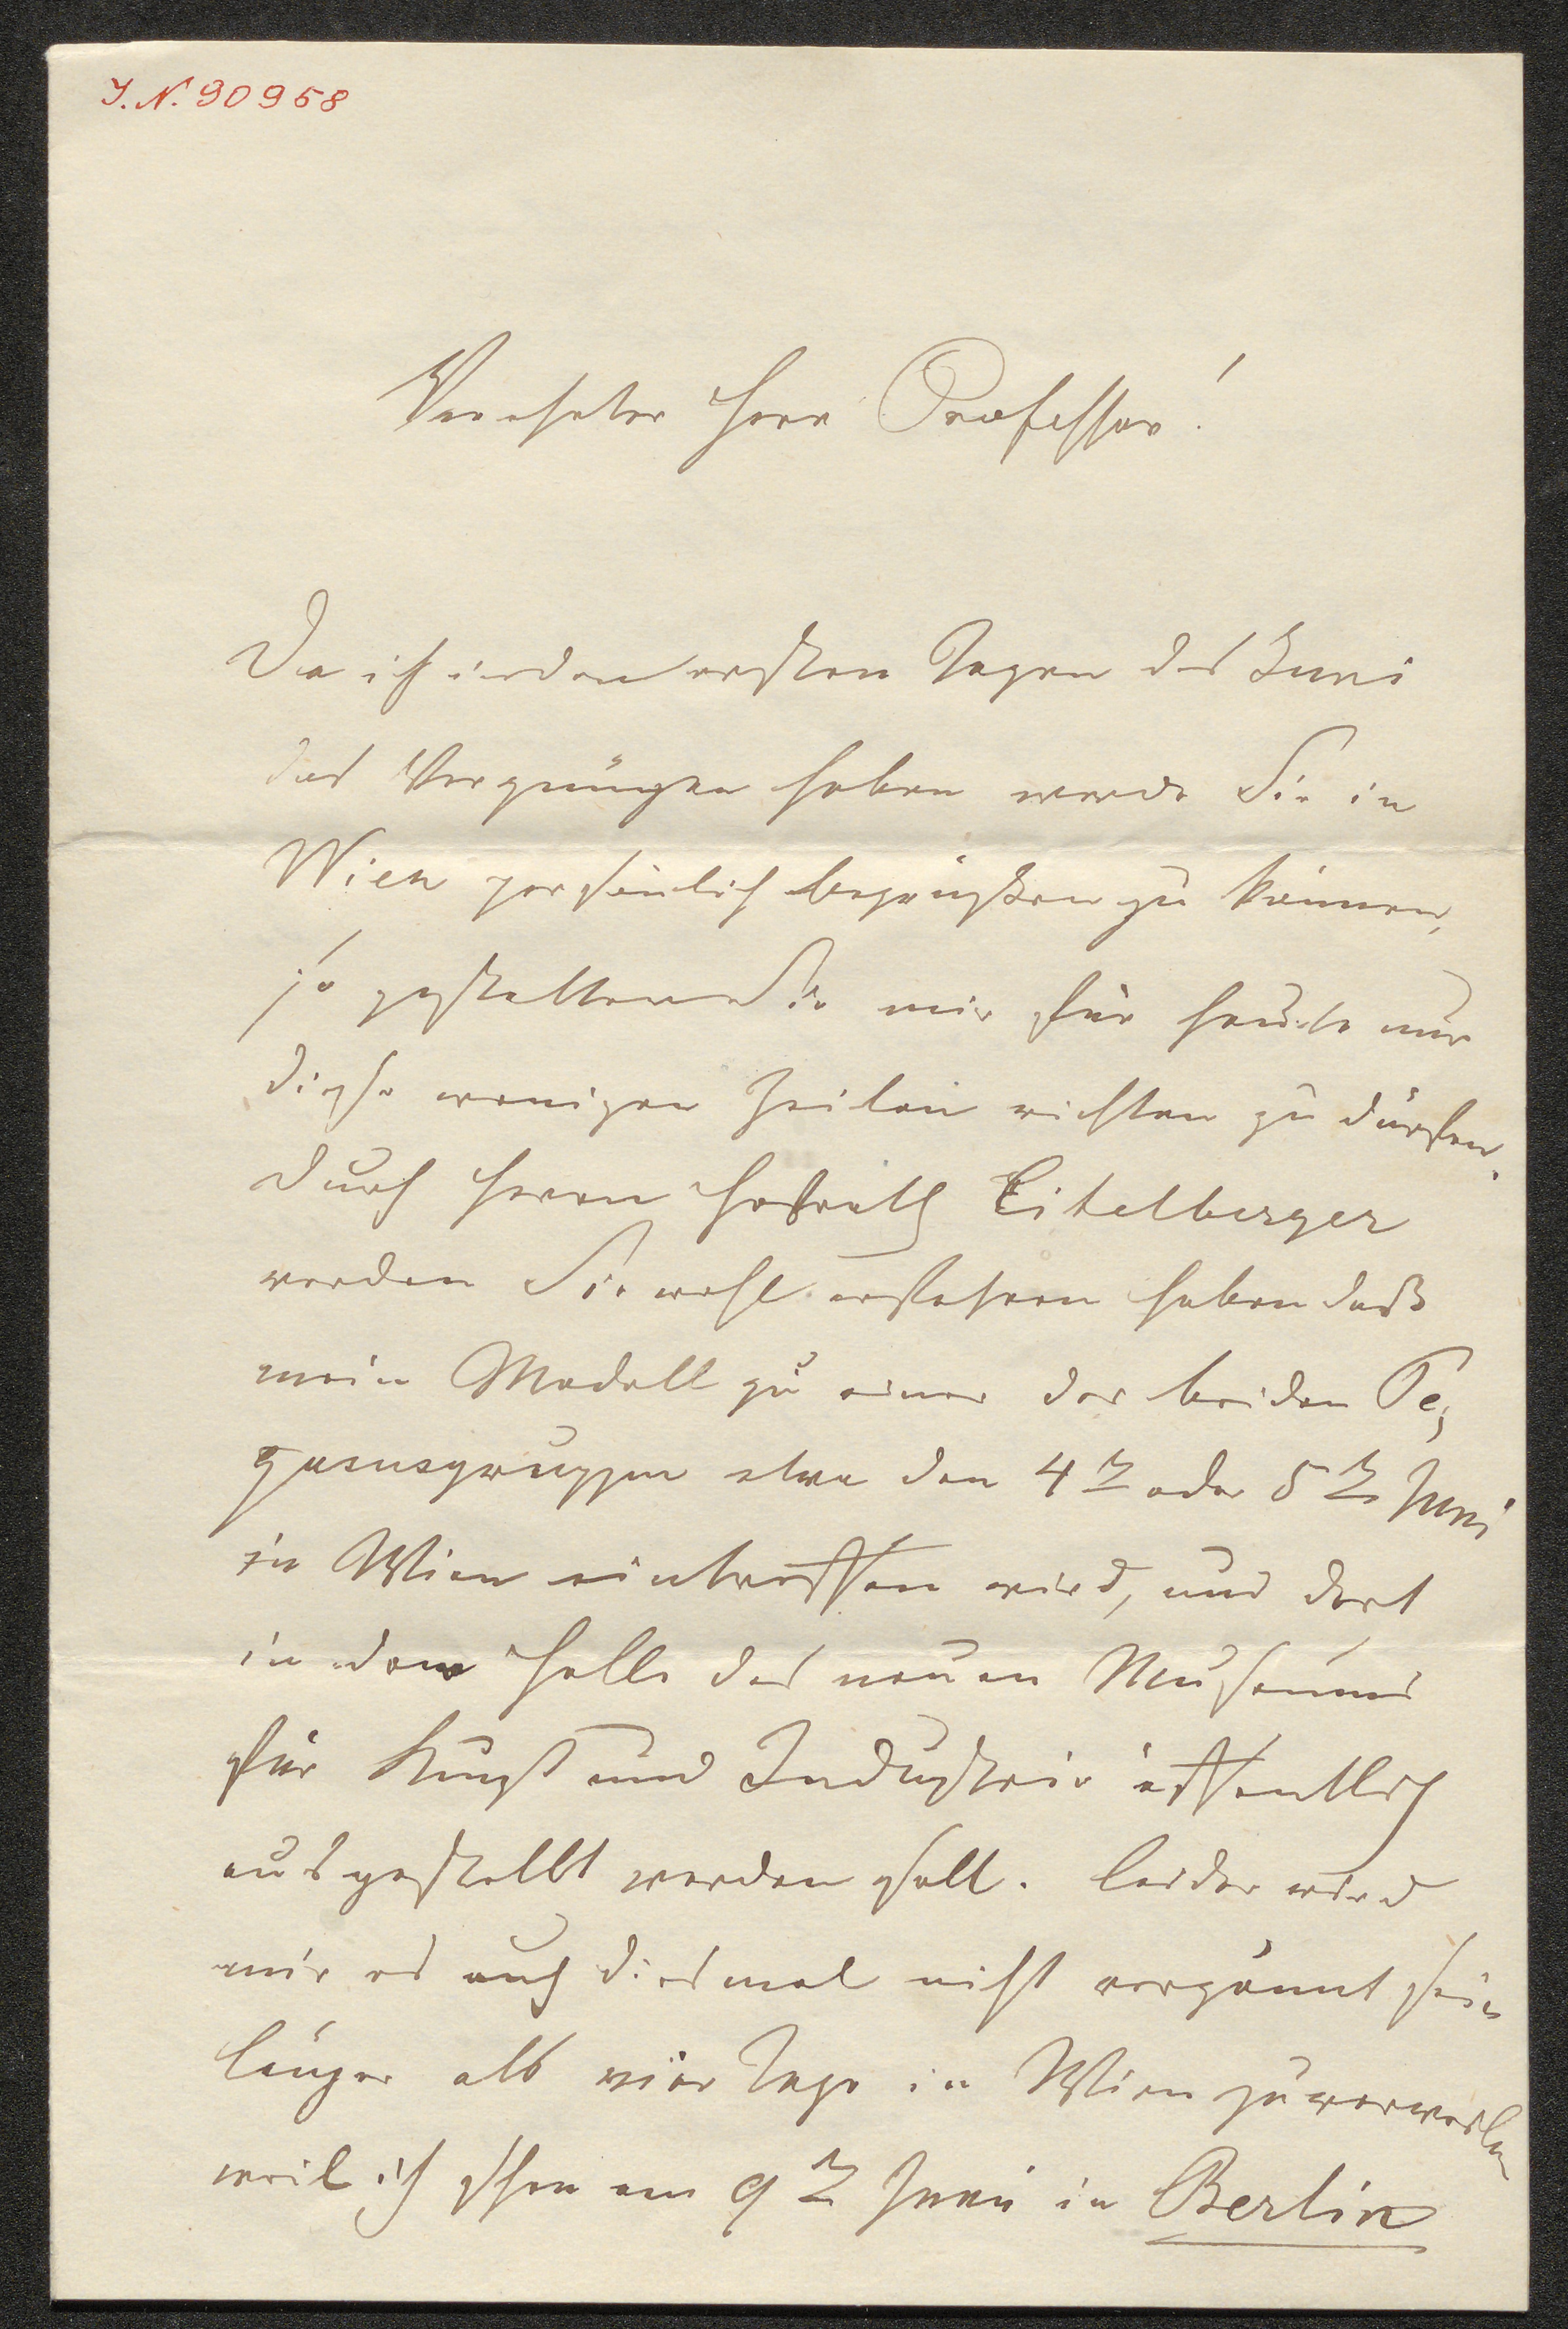 J.N. 90958
Verehrter Herr Professor!
Da ich in den ersten Tagen des Juni
das Vergnügen haben werde Sie in
Wien persönlich begrüßen zu können,
so gestatten Sie mir für heute nur
diese wenigen Zeilen richten zu dürfen.
Durch Herrn Hofrath Eitelberger
werden Sie wohl erfahren haben daß
mein Modell zu einer der beiden Pe-
gasusgruppen etwa den 4t oder 5t Juni
in Wien eintreffen wird, und dort
in der Halle des neuen Museums
für Kunst und Industrie öffentlich
ausgestellt werden soll. Leider wird
mir es auch diesmal nicht vergönnt sein
länger als vier Tage in Wien zu verweilen
weil ich schon am 9t Juni in Berlin